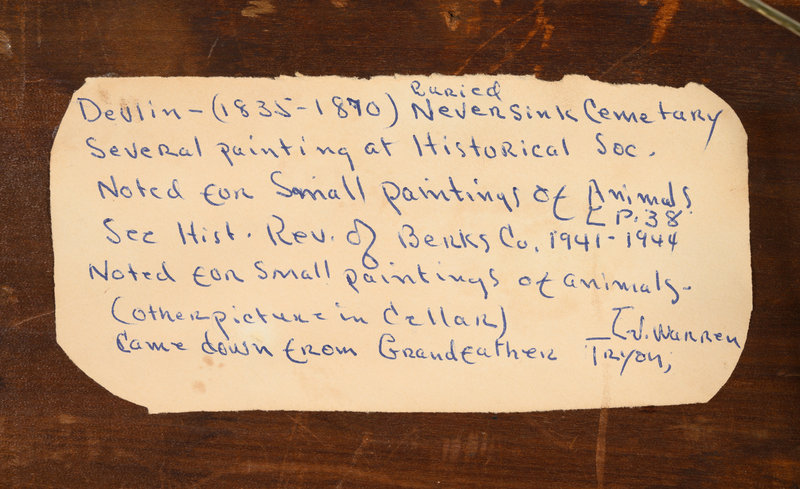 Buried
Devlin - (1835-1870) Neversink Cemetary
Several painting at Historical Soc.
Noted for Small paintings of Animals
See Hist. Rev. of Berks Co. 1941-1944 P. 38
Noted for small paintings of animals.
(other picture in Cellar)
Came down from Grandfather J. Warren
Tryon,